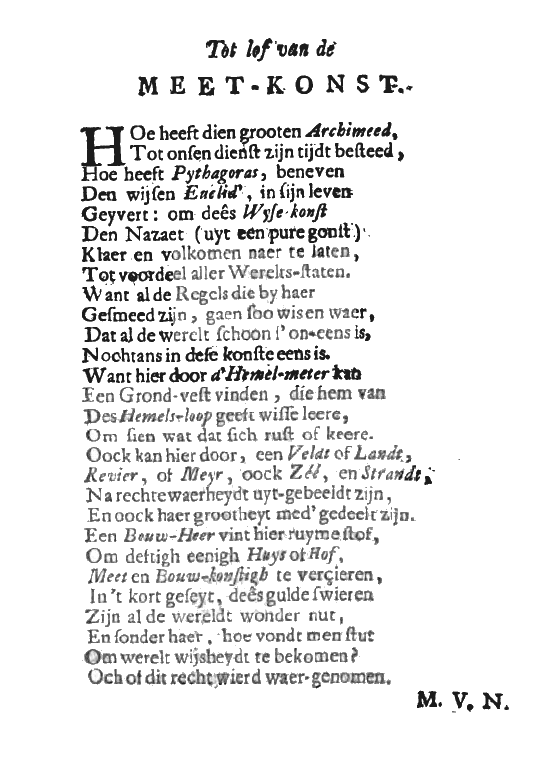 Tot lof van de
MEET-KONST.
HOe heeft dien grooten Archimeed,
Tot onsen dienſt zijn tijdt beſteed,
Hoe heeft Pythagoras, beneven
Den wijſen Euclid', in ſijn leven
Geyvert: om deês Wyſe-konſt
Den Nazaet (uyt een pure gonſt)
Klaer en volkomen naer te laten,
Tot voordeel aller Werelts-ſtaten.
Want al de Regels die by haer
Geſmeed zijn, gaen ſoo wis en waer,
Dat al de werelt ſchoon ſ'on-eens is,
Nochtans in deſe konſte eens is.
Want hier door d'Hemel-meter kan
Een Grond-veſt vinden, die hem van
Des Hemels-loop geeft wiſſe leere,
Om ſien wat dat ſich ruſt of keere.
Oock kan hier door, een Veldt of Landt,
Revier, of Meyr, oock Zéé, en Strandt,
Na rechte waerheydt uyt-gebeeldt zijn,
En oock haer grootheyt med' gedeelt zijn.
Een Bouw-Heer vint hier ruyme ſtof,
Om deftigh eenigh Huys of Hof,
Meet en Bouw-konſtigh te verçieren,
In't kort geſeyt, deês gulde ſwieren
Zijn al de wereldt wonder nut,
En ſonder haer, hoe vondt men ſtut
Om werelt wijsheydt te bekomen?
Och of dit recht wierd waer-genomen.
M. V. N.